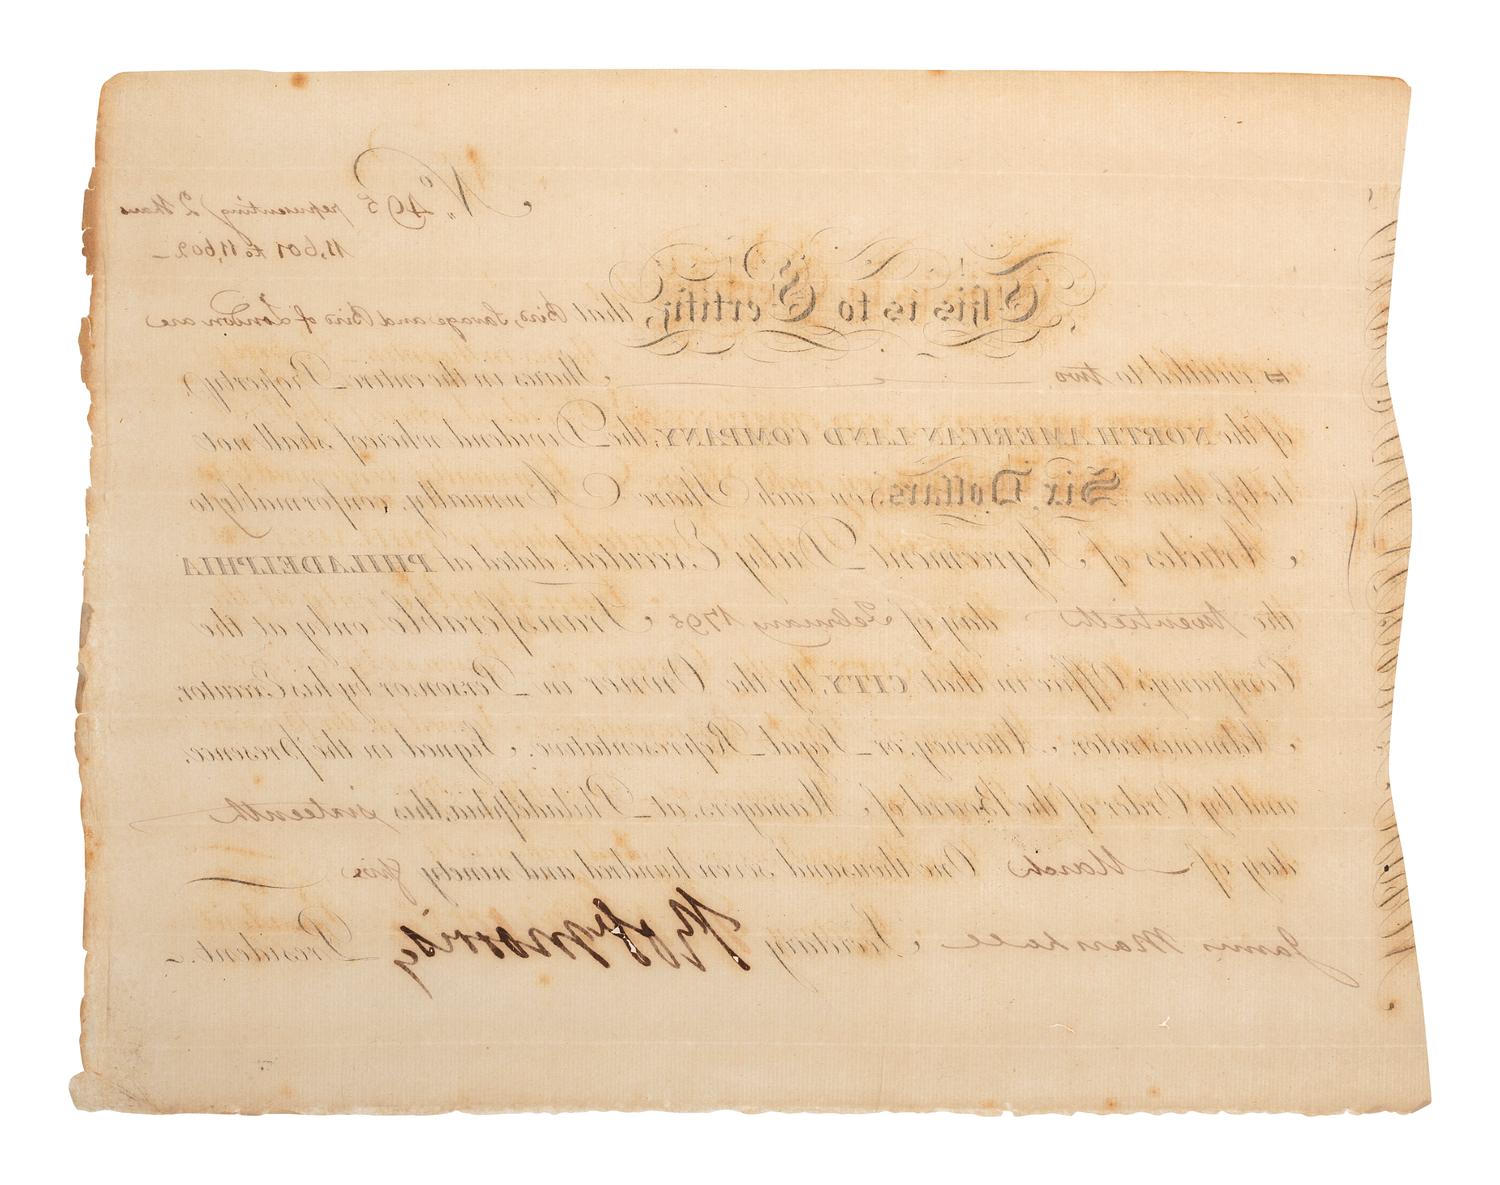 No. 495 representing 2 Shares
11,601 to 11,602 –
This is to Certify, that Bird, Savage and Bird of London are
is entitled to two Shares in the entire Property
of the NORTH AMERICAN LAND COMPANY, the Dividend whereof shall not
be less than Six Dollars, on each Share Annually, conformably to
Articles of Agreement Duly Executed, dated at PHILADELPHIA
the twentieth day of February 1795 Transferable only at the
Company's Office in that CITY, by the Owner in Person, or by his Executor,
Administrator, Attorney, or Legal Representative. Signed in the presence,
and by Order of the Board of Managers, at Philadelphia, this sixteenth
day of March One thousand seven hundred and ninety five
James Marshall Secretary Robt Morris President.